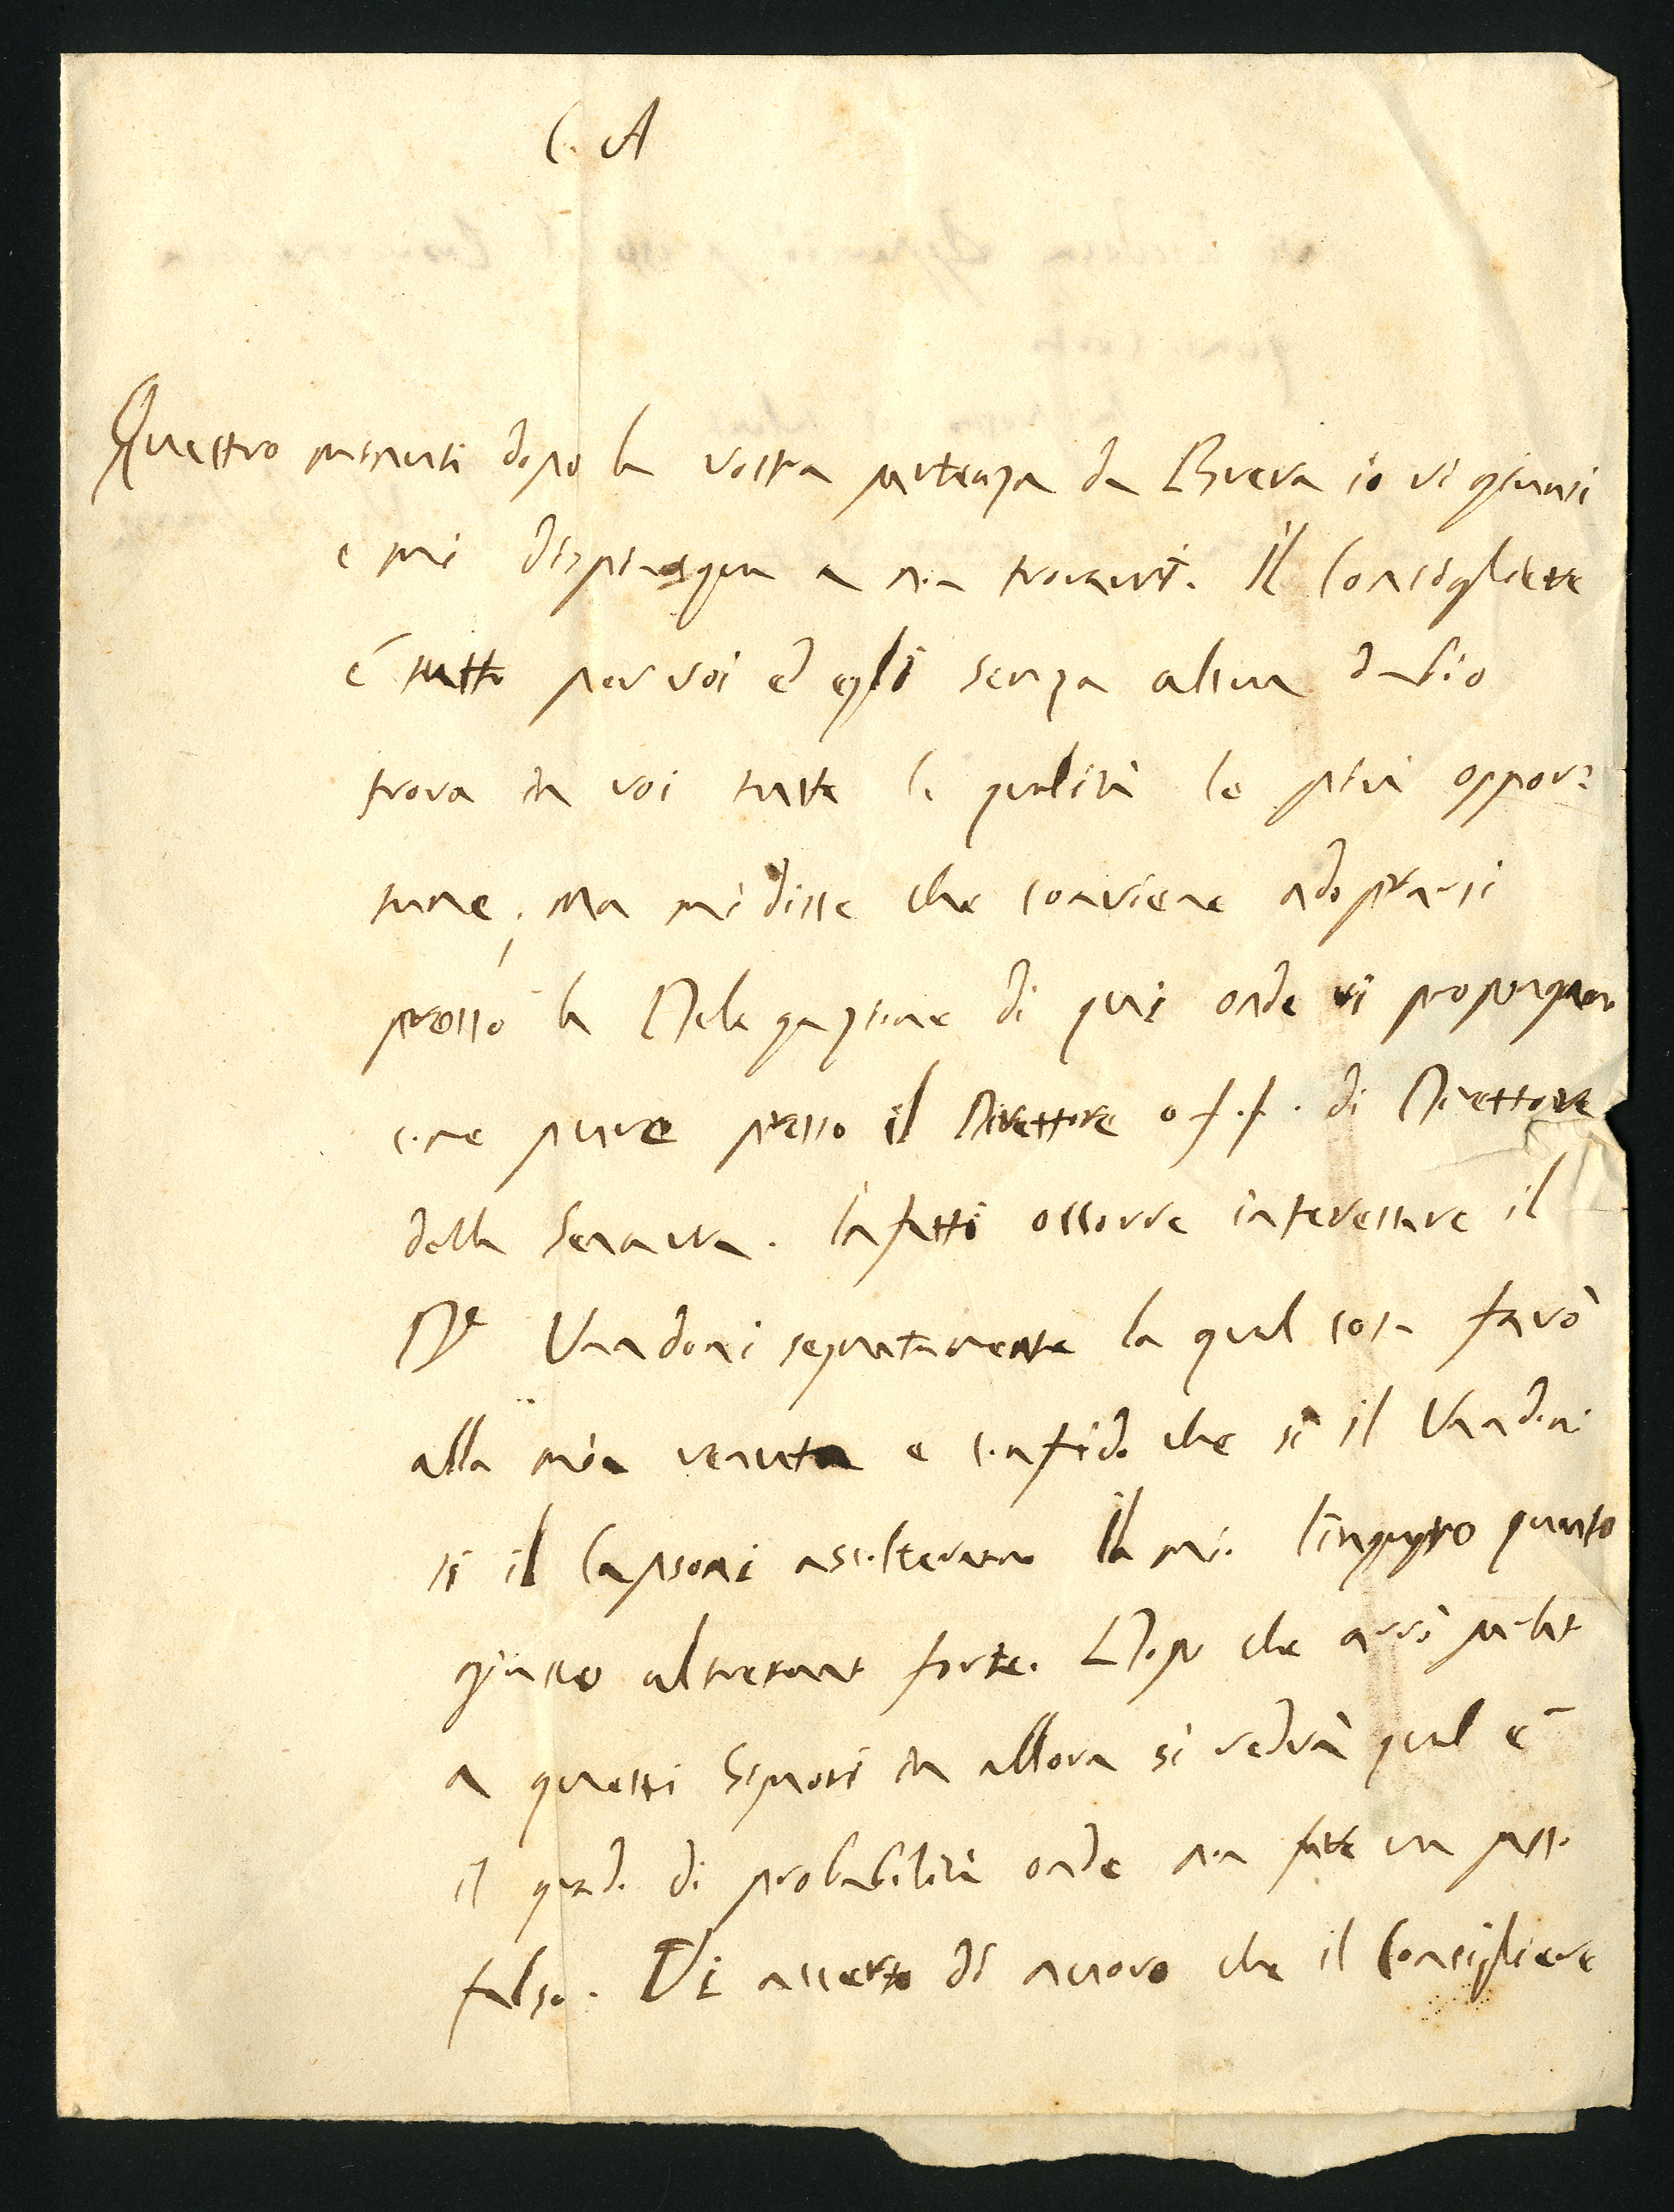 C. A
Quattro minuti dopo la vostra partenza da Brera io vi giunsi
e mi dispiacque a non trovarvi. Il Consigliere
é tutto per voi ed egli senza alcun dubio
trova in voi tutte le qualità le più oppor=
tune, ma mi disse che conviene adoprarsi
presso la Delegazione di qui onde vi propongano
come pure presso il Direttore o f.f. di Direttore
della Senavra. Infatti occorre interessare il
Dr Vandoni separatamente la qual cosa farò
alla mia venuta e confido che sì il Vandoni
si il Capsoni ascolteranno il mio linguaggio quanto
giusto altretanto forte. Dopo che avrò parlato
a questi Signori in allora si vedrà qual é
il grado di probabilità onde non fate un passo
falso. Vi accerto di nuovo che il Consigliere